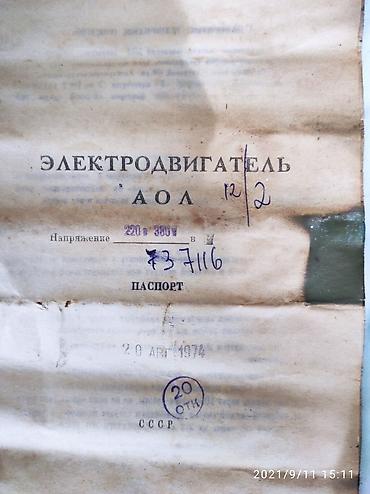 ЭЛЕКТРОДВИГАТЕЛЬ
АОЛ 12/2
Напряжение 220в 380в в
737116
ПАСПОРТ
20 АВГ 1974
20
ОТК
СССР
2021/9/11 15:11